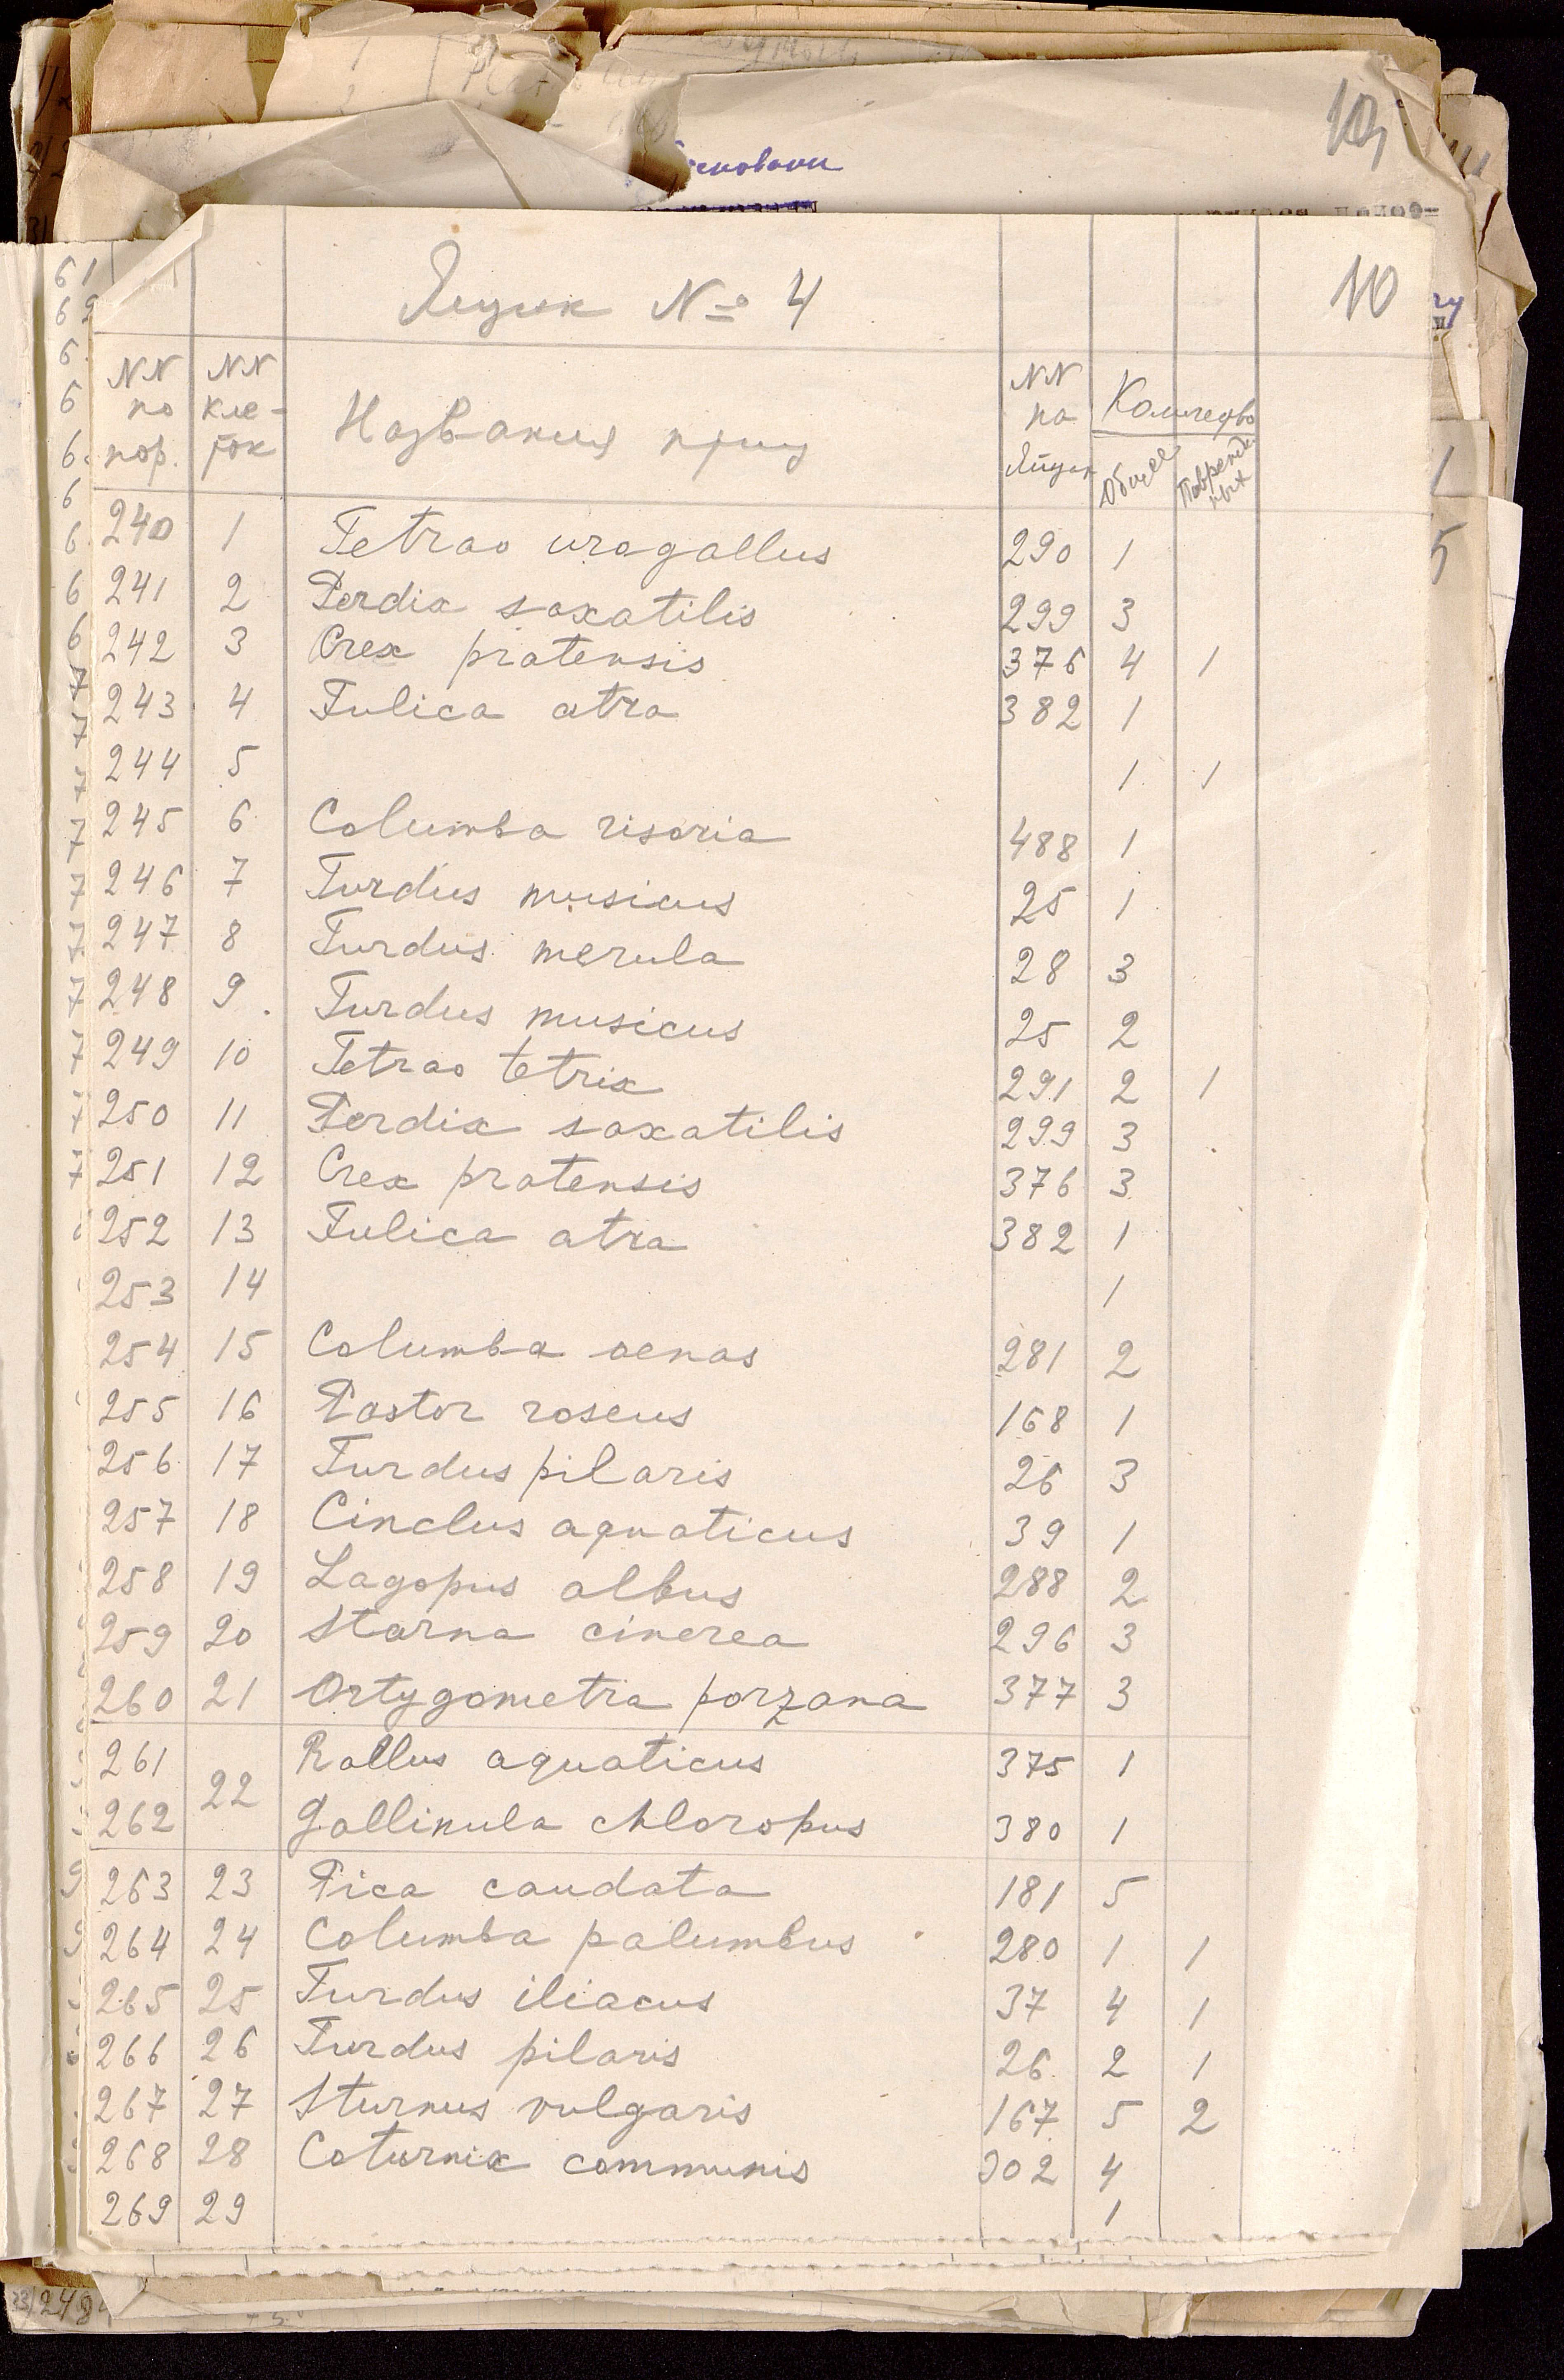 10
Ящик № 4
NN по пор. NN кле-ток Названия птиц NN по Яйцам Количество Общее Поврежден-ных
240 1 Tetrao urogallus 290 1
241 2 Perdix saxatilis 299 3
242 3 Crex pratensis 376 4 1
243 4 Fulica atra 382 1
244 5 1 1
245 6 Columba risoria 488 1
246 7 Turdus musicus 25 1
247 8 Turdus merula 28 3
248 9 Turdus musicus 25 2
249 10 Tetrao tetrix 291 2 1
250 11 Perdix saxatilis 299 3
251 12 Crex pratensis 376 3
252 13 Fulica atra 382 1
253 14 1
254 15 Columba oenas 281 2
255 16 Pastor roseus 168 1
256 17 Turdus pilaris 26 3
257 18 Cinclus aquaticus 39 1
258 19 Lagopus albus 288 2
259 20 Starna cinerea 296 3
260 21 Ortygometra porzana 377 3
261 22 Rallus aquaticus 375 1
262 Gallinula chloropus 380 1
263 23 Pica caudata 181 5
264 24 Columba palumbus 280 1 1
265 25 Turdus iliacus 37 4 1
266 26 Turdus pilaris 26 2 1
267 27 Sturnus vulgaris 167 5 2
268 28 Coturnix communis 302 4
269 29 1